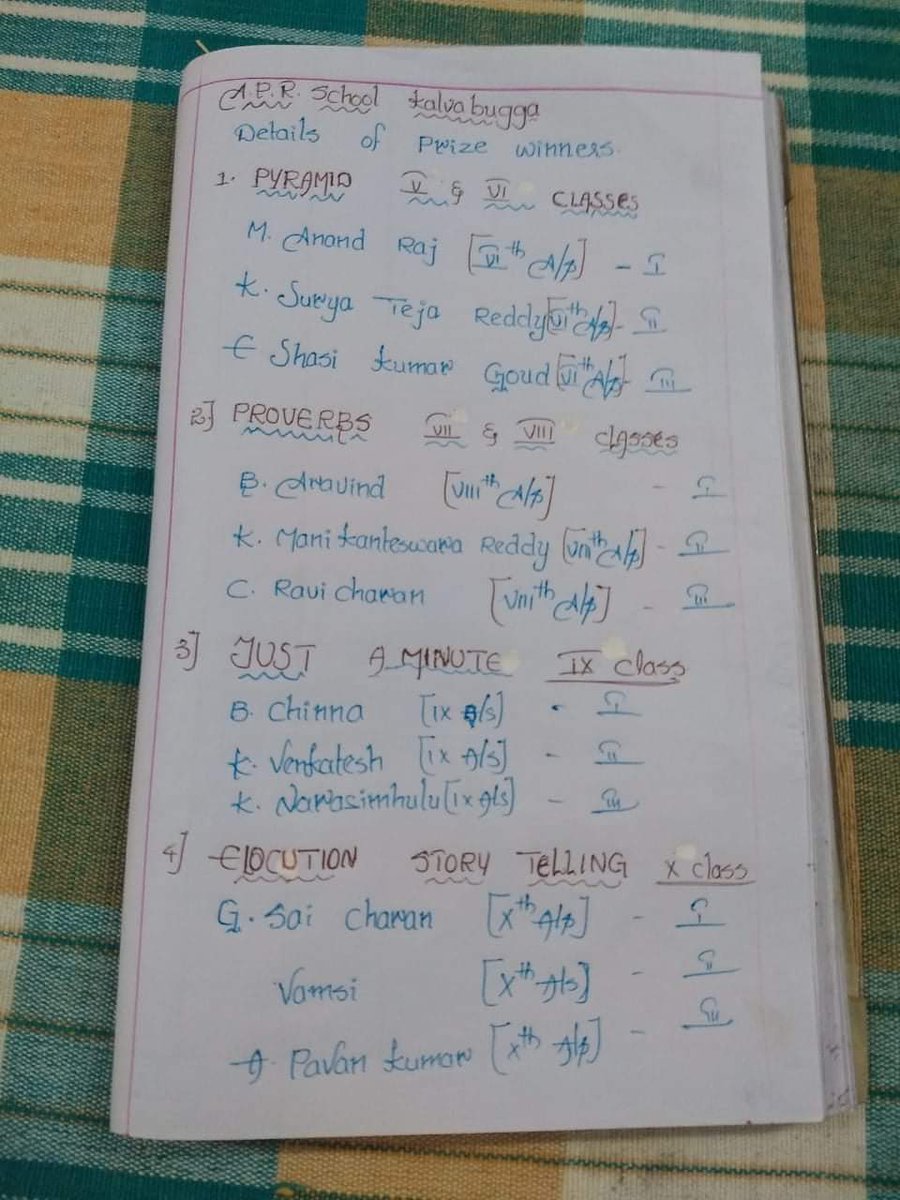 A.P.R. School Kalvabugga
Details of Prize winners.
1. PYRAMID V & VI CLASSES
M. Anand Raj [VIth A/p] - I
K. Surya Teja Reddy [VIth A/p] - II
E Shasi kumar Goud [VIth A/p] - III
2] PROVERBS VII & VIII classes
B. Aravind [VIIIth A/p] - I
K. Mani kanteswara Reddy [VIIIth A/p] - II
C. Ravi charan [VIIIth A/p] - III
3] JUST A MINUTE IX class
B. Chinna [IX A/s] - I
K. Venkatesh [IX A/s] - II
K. Narasimhulu [IX A/s] - III
4] ELOCUTION STORY TELLING X class
G. Sai charan [Xth A/p] - I
Vamsi [Xth A/s] - II
A. Pavan kumar [Xth A/p] - III